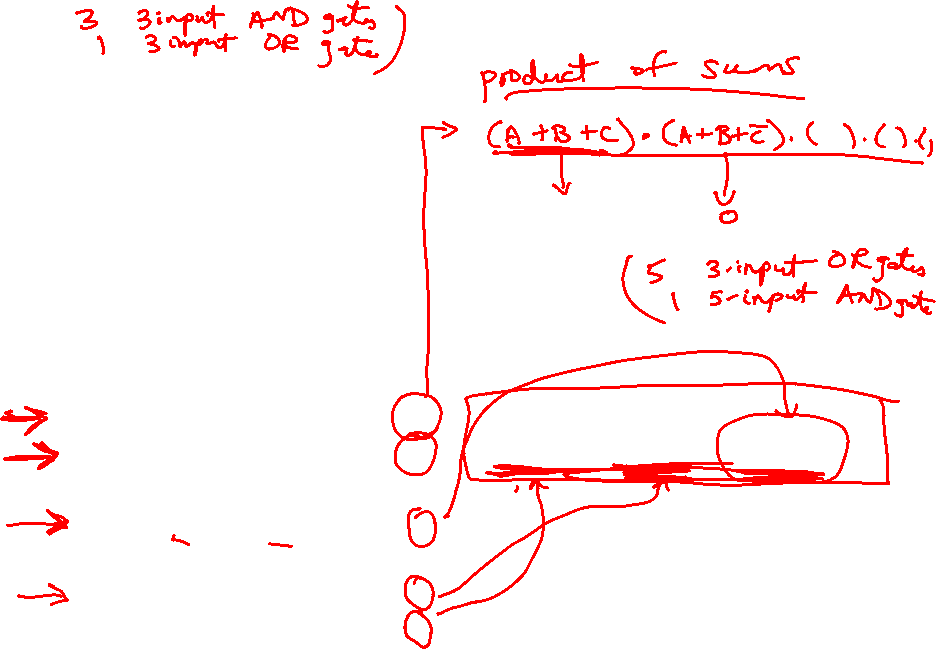 3 3input AND gates
1 3 input OR gate
product of sums
(A+B+C)·(A+B+C̅)·( )·( )·(,
0
5 3-input OR gates
1 5-input AND gate